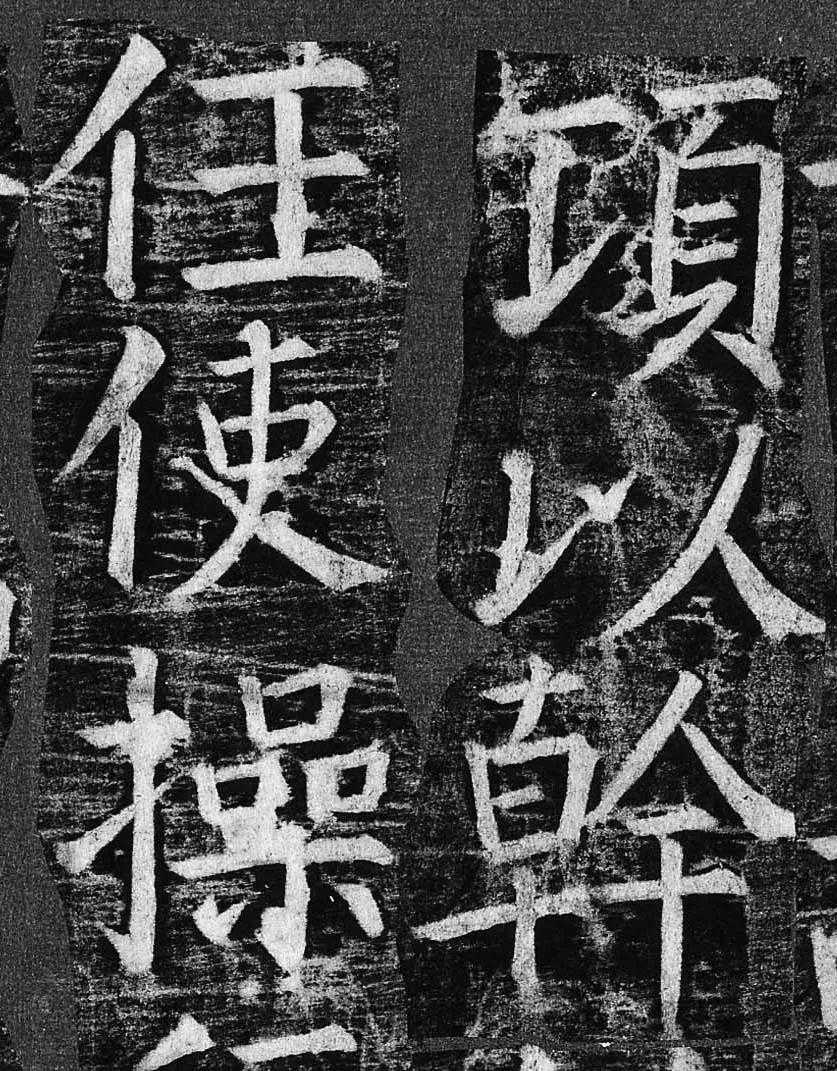 項以幹
任使操